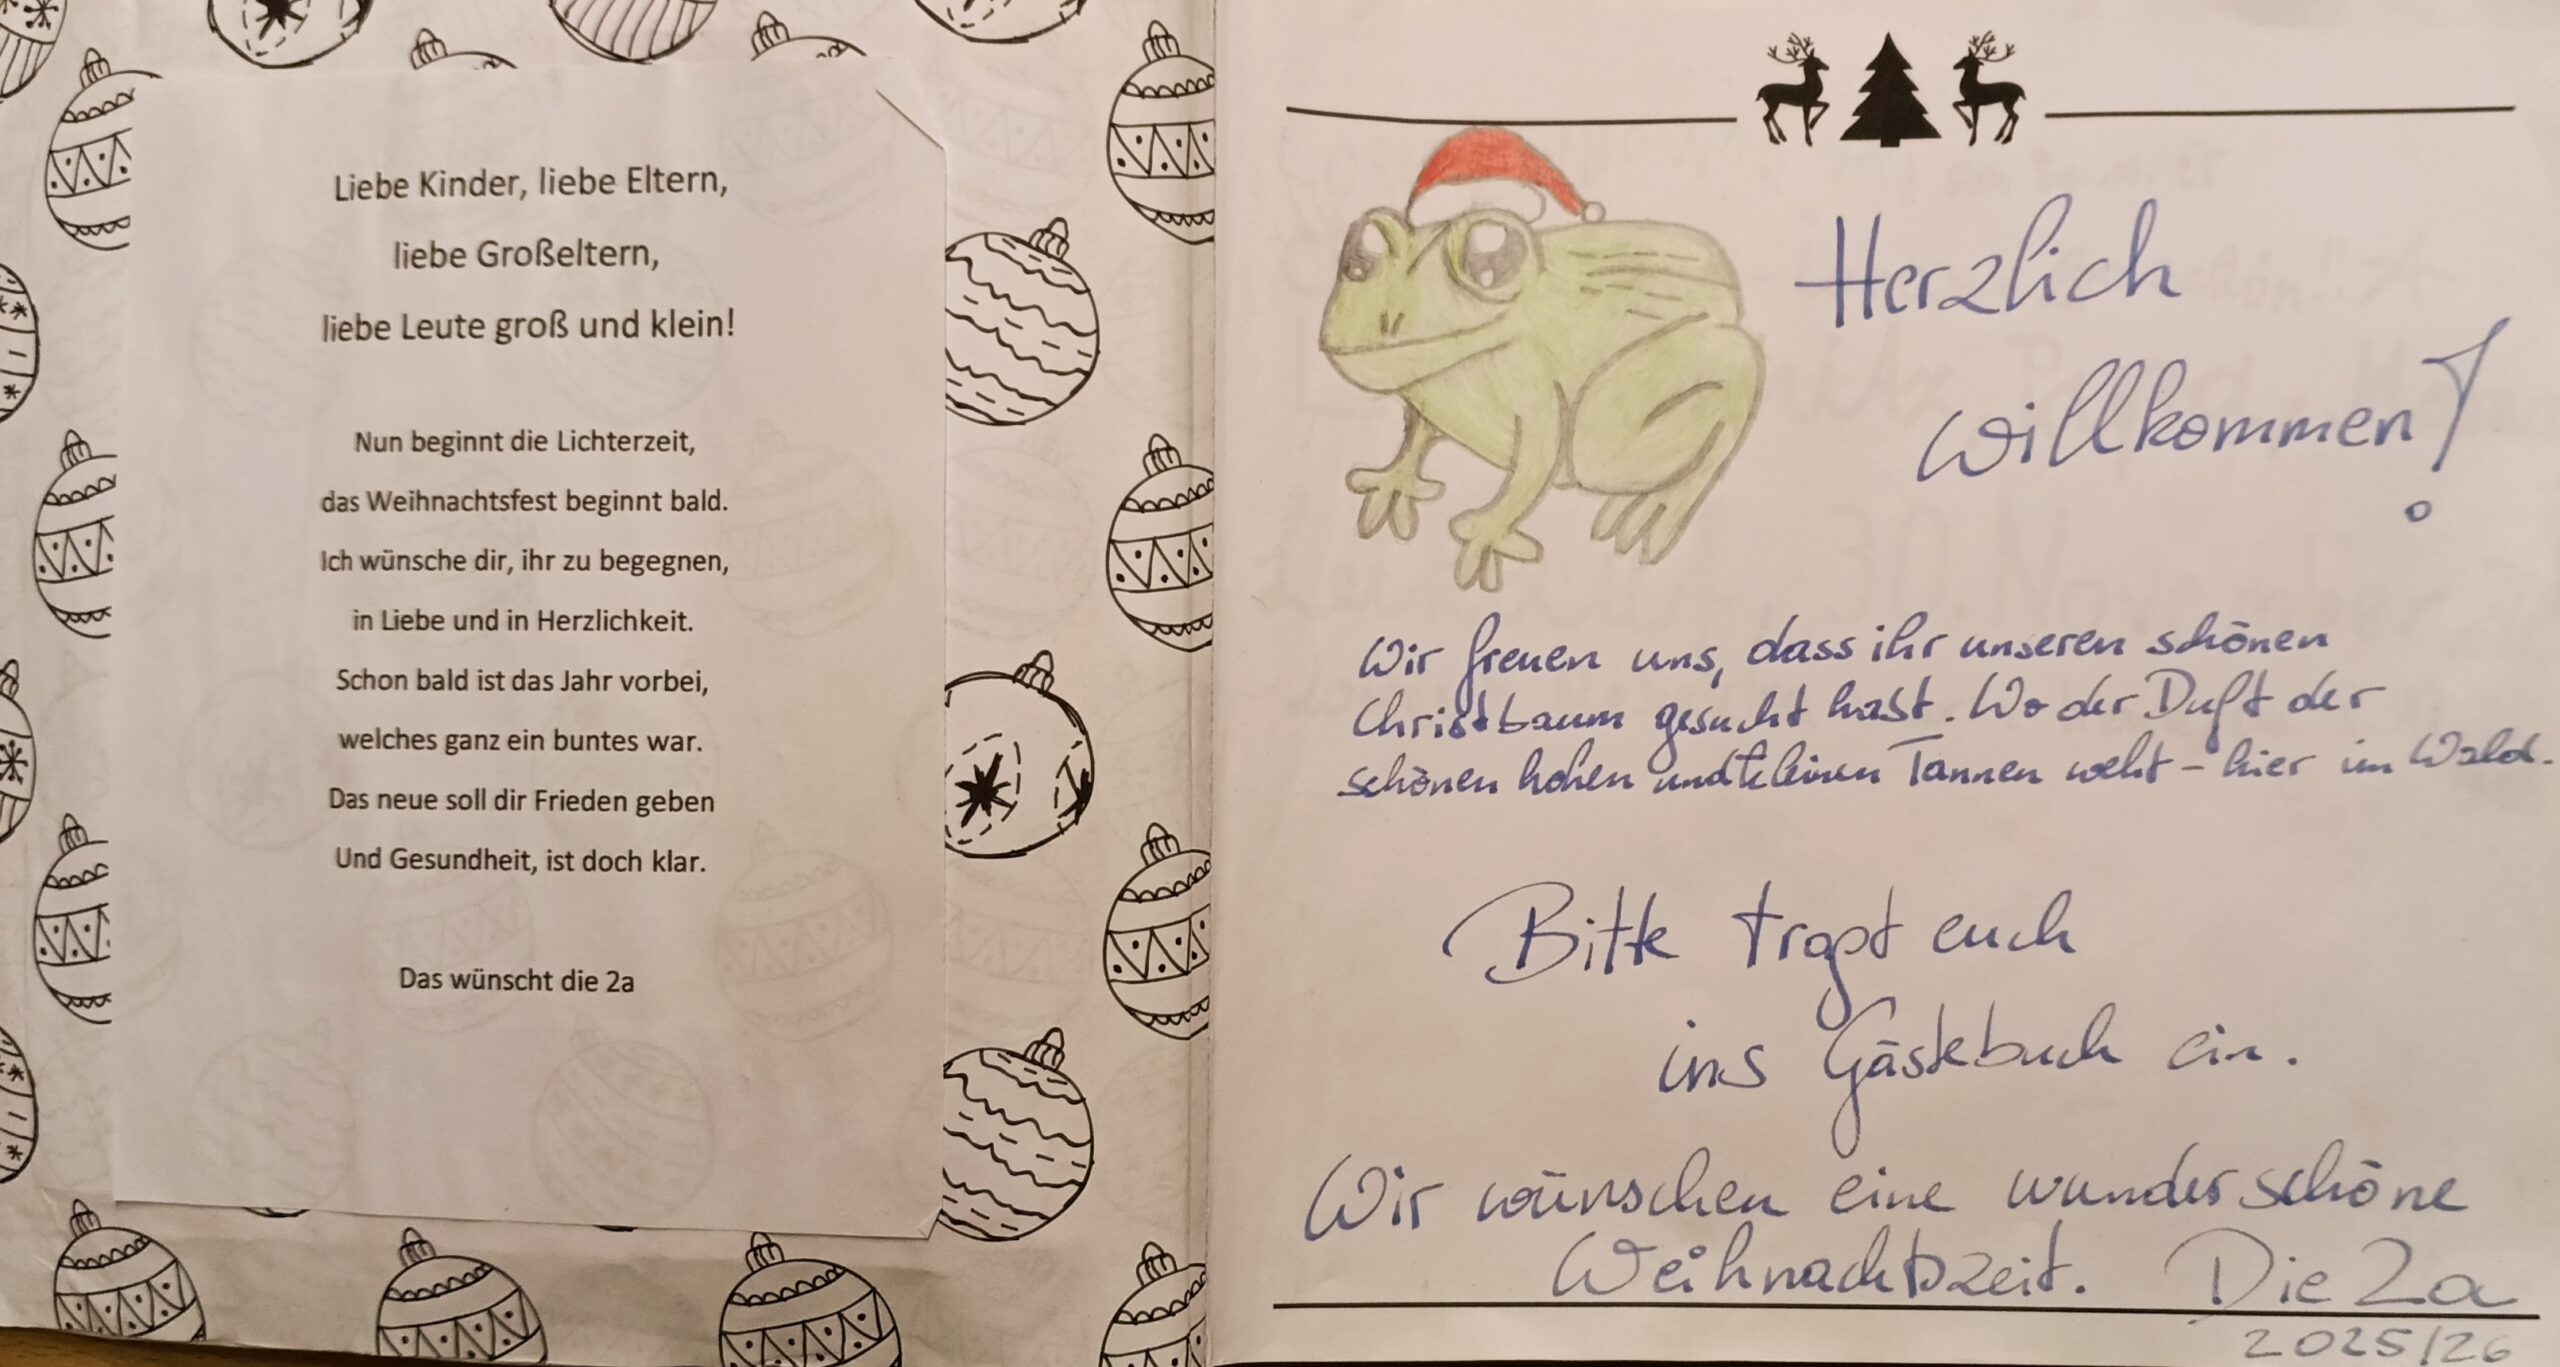 Liebe Kinder, liebe Eltern,
liebe Großeltern,
liebe Leute groß und klein!
Nun beginnt die Lichterzeit,
das Weihnachtsfest beginnt bald.
Ich wünsche dir, ihr zu begegnen,
in Liebe und in Herzlichkeit.
Schon bald ist das Jahr vorbei,
welches ganz ein buntes war.
Das neue soll dir Frieden geben
Und Gesundheit, ist doch klar.
Das wünscht die 2a
Herzlich
willkommen!
Wir freuen uns, dass ihr unseren schönen
Christbaum gesucht habt. Wo der Duft der
schönen hohen und kleinen Tannen weht - hier im Wald.
Bitte tragt euch
ins Gästebuch ein.
Wir wünschen eine wunderschöne
Weihnachtszeit. Die 2a
2025/26